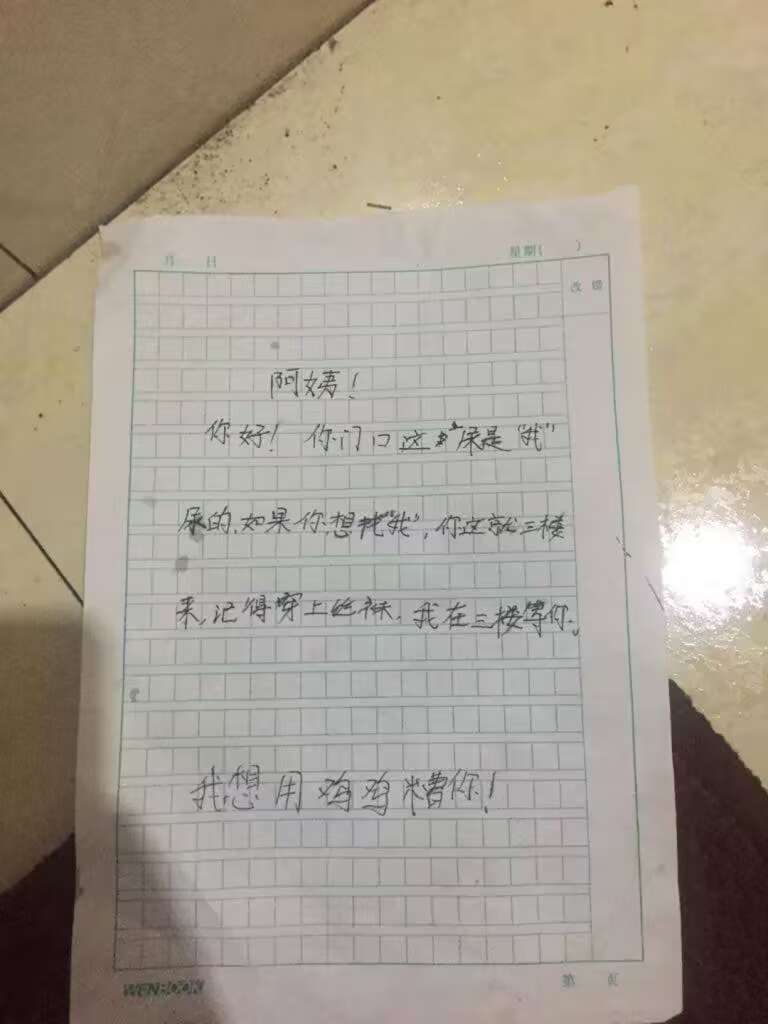 月 日 星期( )
改 错
阿姨!
你好! 你门口这尿是“我”
尿的.如果你想找“我”,你这就三楼
来,记得穿上丝袜.我在三楼等你.
我想用鸡鸡糟你!
WENBOOK
第 页